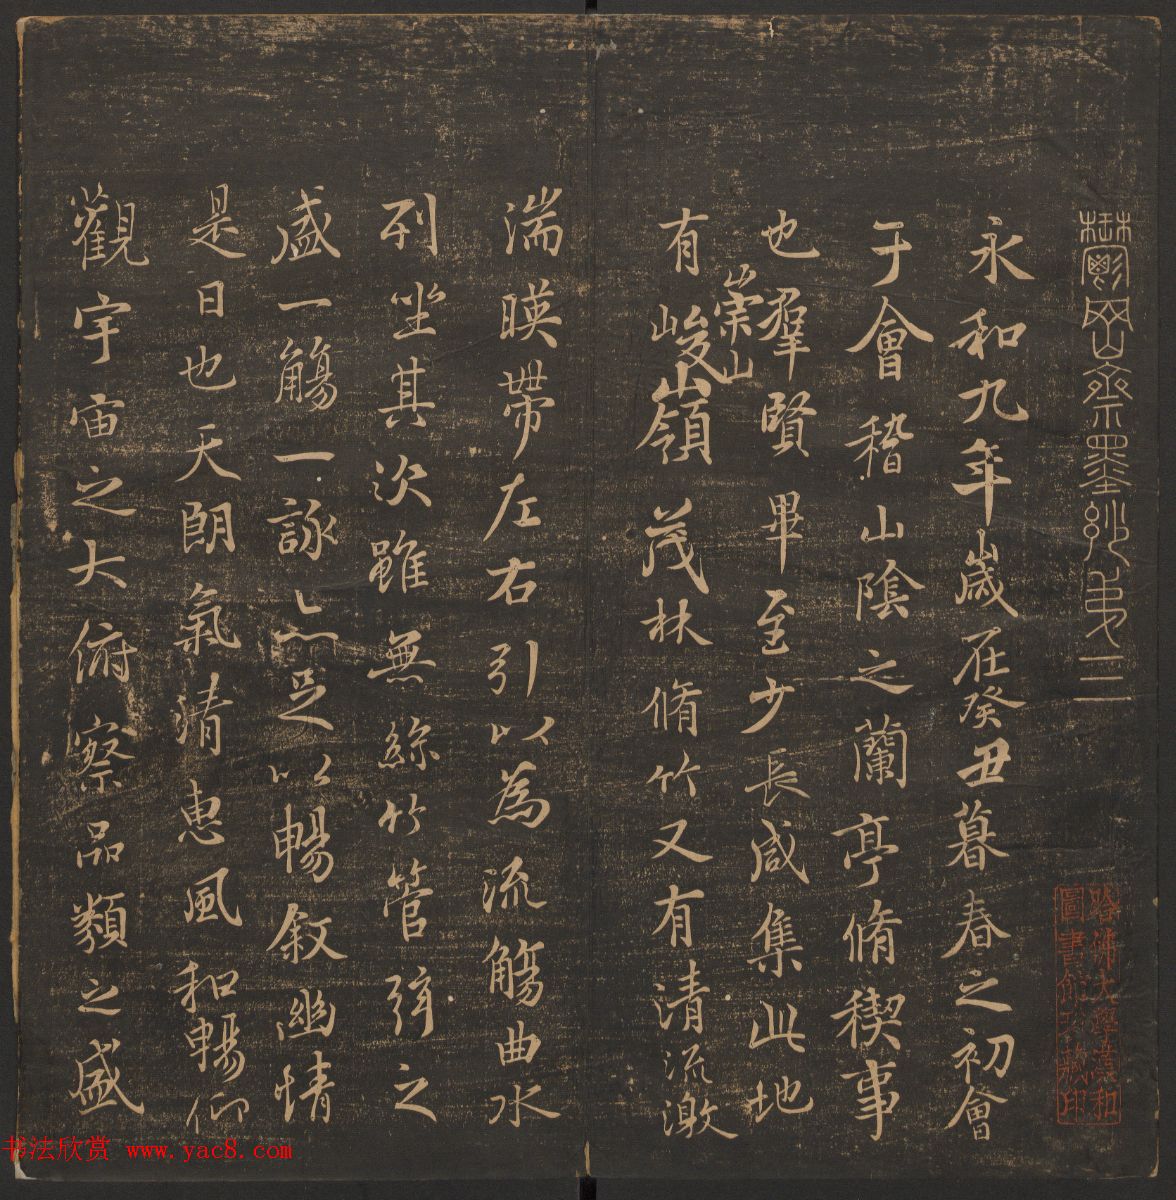 鬱岡齋墨妙弟三
哈佛大學漢和
圖書館珍藏印
永和九年歲在癸丑暮春之初會
于會稽山陰之蘭亭脩稧事
也羣賢畢至少長咸集此地
有崇山峻嶺茂林脩竹又有清流激
湍暎帶左右引以為流觴曲水
列坐其次雖無絲竹管弦之
盛一觴一詠亦足以暢敘幽情
是日也天朗氣清惠風和暢仰
觀宇宙之大俯察品類之盛
书法欣赏 www.yac8.com